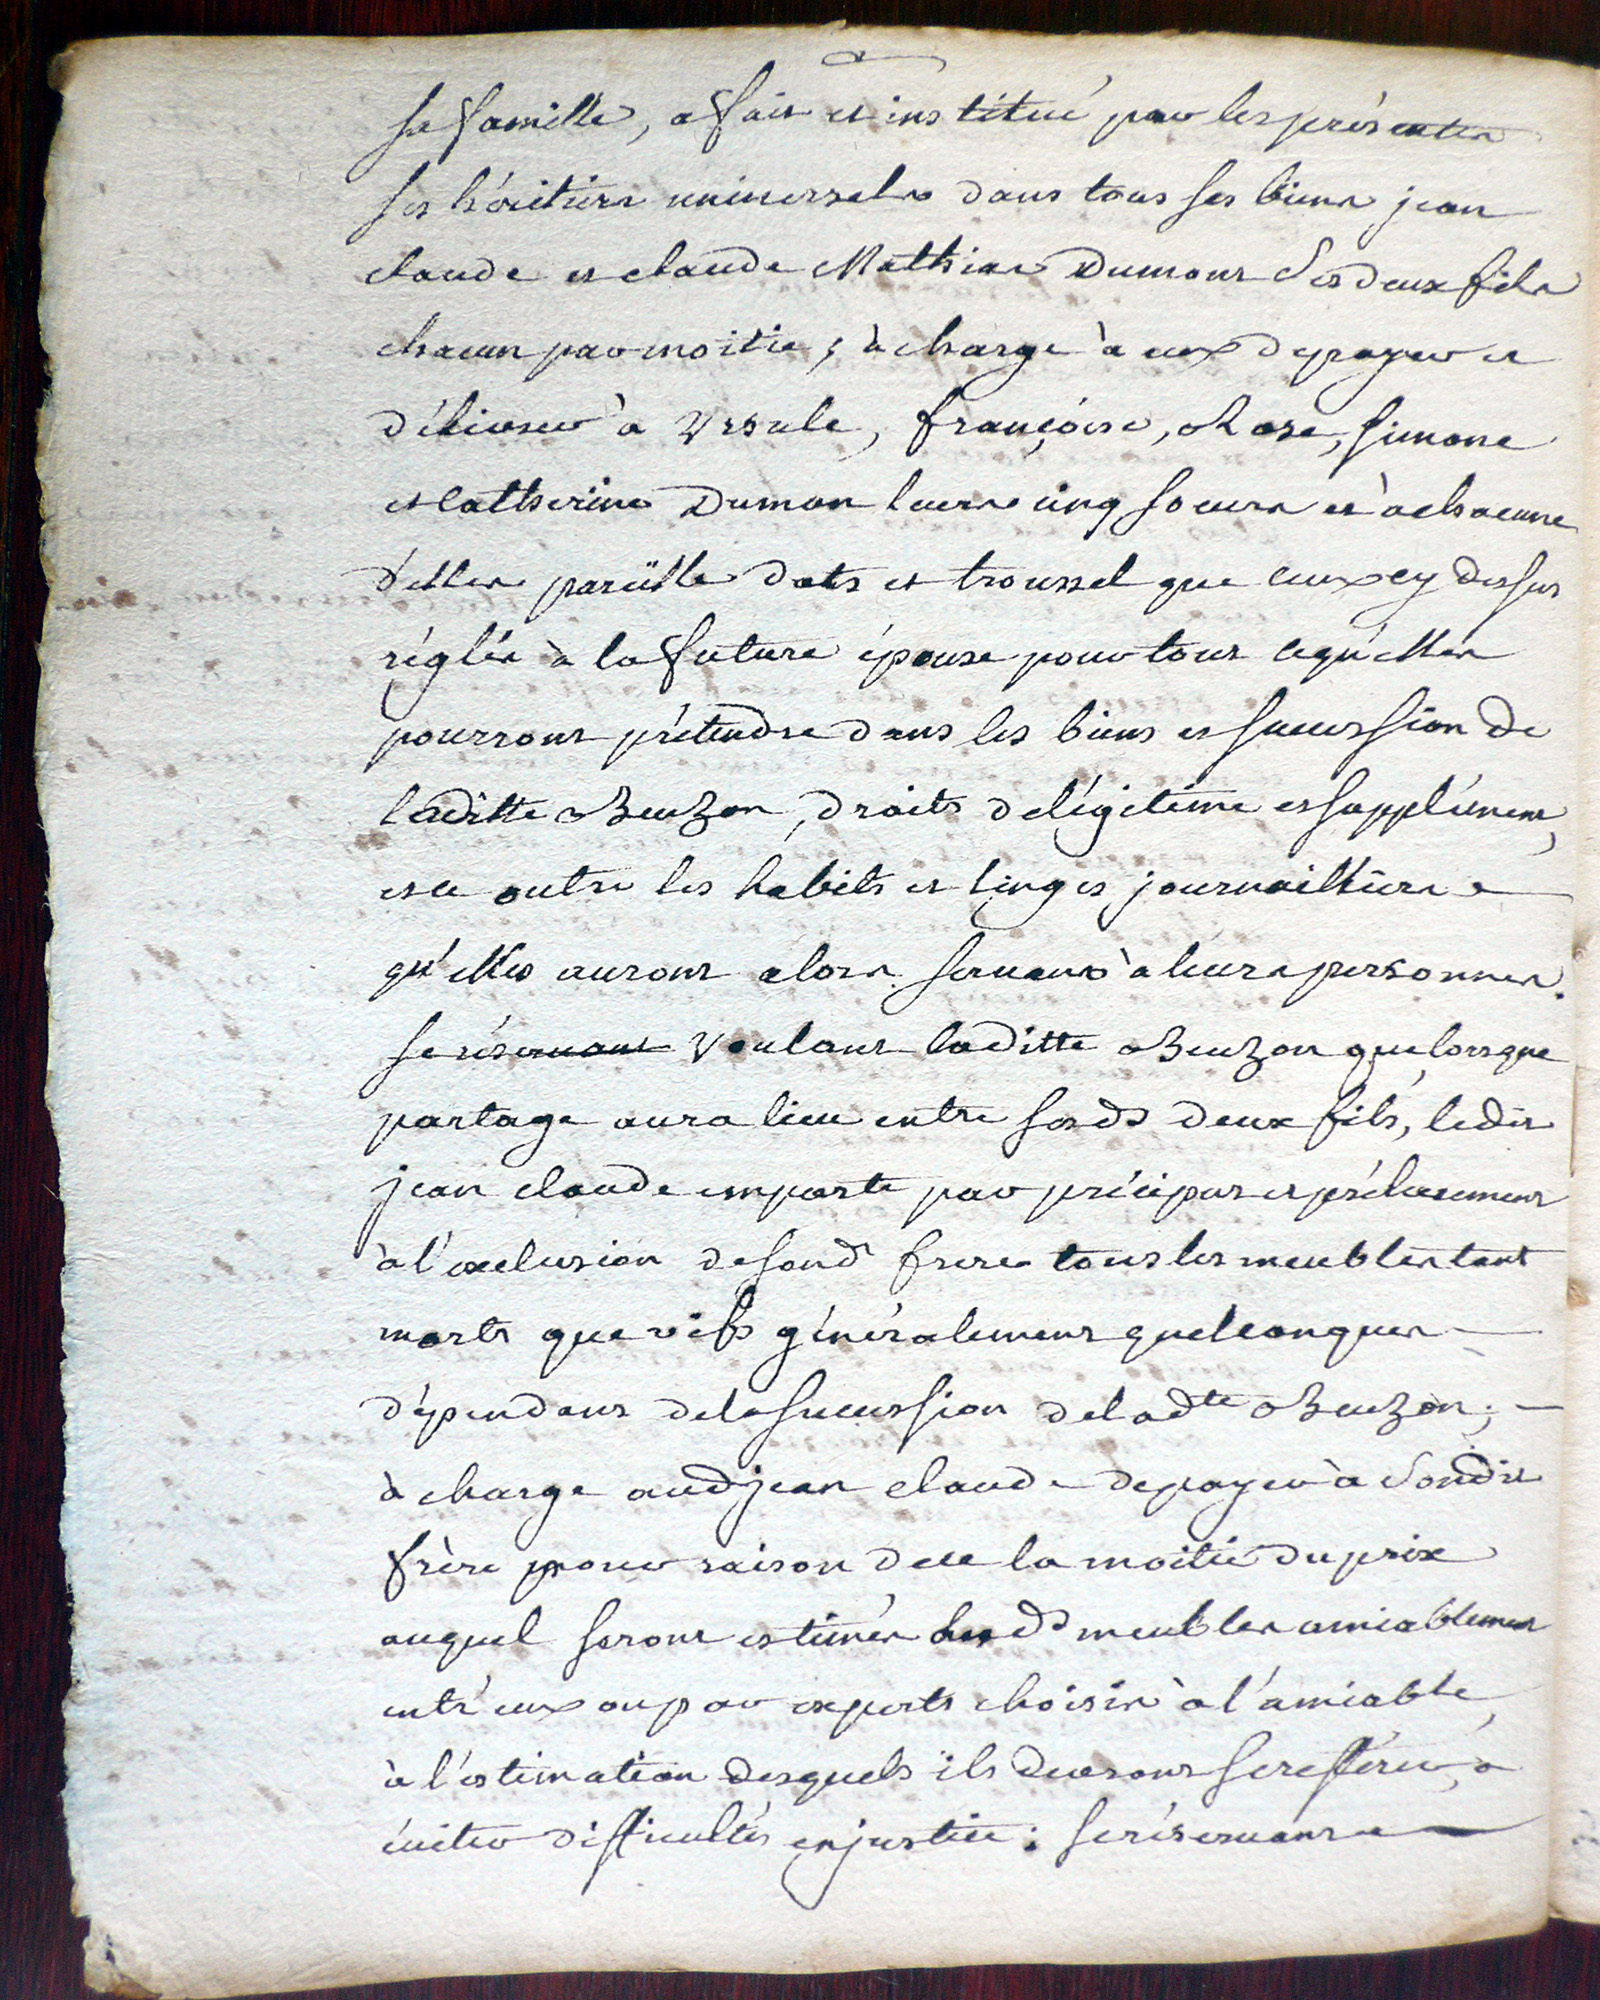 sa famille, a fait et institué par les présentes
ses héritiers universels dans tous ses biens jean
claude et claude Mathias Dumont Ses deux fils
chacun par moitié, à charge à eux de payer et
délivrer à Ursule, françoise, Rose, Simone
et Catherine Dumon leurs cinq soeurs et à chacune
d'elles pareille dots et troussel que ceux cy dessus
réglés à la future épouse pour tout ce qu'elles
pourront prétendre dans les biens et succession de
laditte Beuzon, droits de légitime et supplément,
et ce outre les habits et linges journailliers
qu'elles auront alors servant à leurs personnes.
Se réservant Voulant laditte Beuzon que lorsque
partage aura lieu entre sesds deux fils, ledit
jean claude emporte par préciput et prélevement
à l'exclusion de sond frere tous les meubles tant
morts que vifs généralement quelconques
dépendant de la succession de ladte Beuzon;
à charge aud jean claude de payer à Sondit
frère pour raison de ce la moitié du prix
auquel seront estimés lesds meubles amiablement
entr'eux ou par experts choisis à l'amiable,
à l'estimation desquels ils devront se refférer, à
éviter difficultés en justice: se réservant